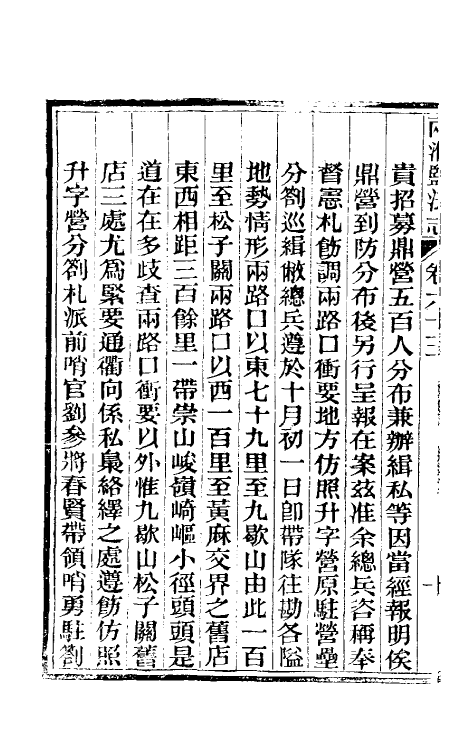 兩淮鹽法志
卷六十三
貴招募鼎營五百人分布兼辦緝私等因當經報明俟
鼎營到防分布後另行呈報在案茲准余總兵咨稱奉
督憲札飭調兩路口衝要地方仿照升字營原駐營壘
分劄巡緝敝總兵遵於十月初一日卽帶隊往勘各隘
地勢情形兩路口以東七十九里至九歇山由此一百
里至松子關兩路口以西一百里至黃麻交界之舊店
東西相距三百餘里一帶崇山峻嶺崎嶇小徑頭頭是
道在在多歧查兩路口衝要以外惟九歇山松子關舊
店三處尤爲緊要通衢向係私梟絡繹之處遵飭仿照
升字營分劄札派前哨官劉參將春賢帶領哨勇駐劄